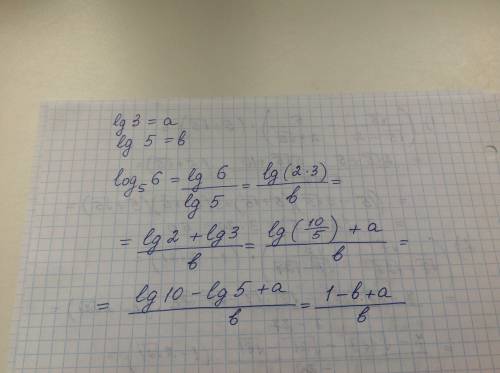 lg 3 = a
lg 5 = b
log₅6 = lg 6 / lg 5 = lg(2·3) / b =
= (lg 2 + lg 3) / b = (lg(10/5) + a) / b =
= (lg 10 − lg 5 + a) / b = (1 − b + a) / b